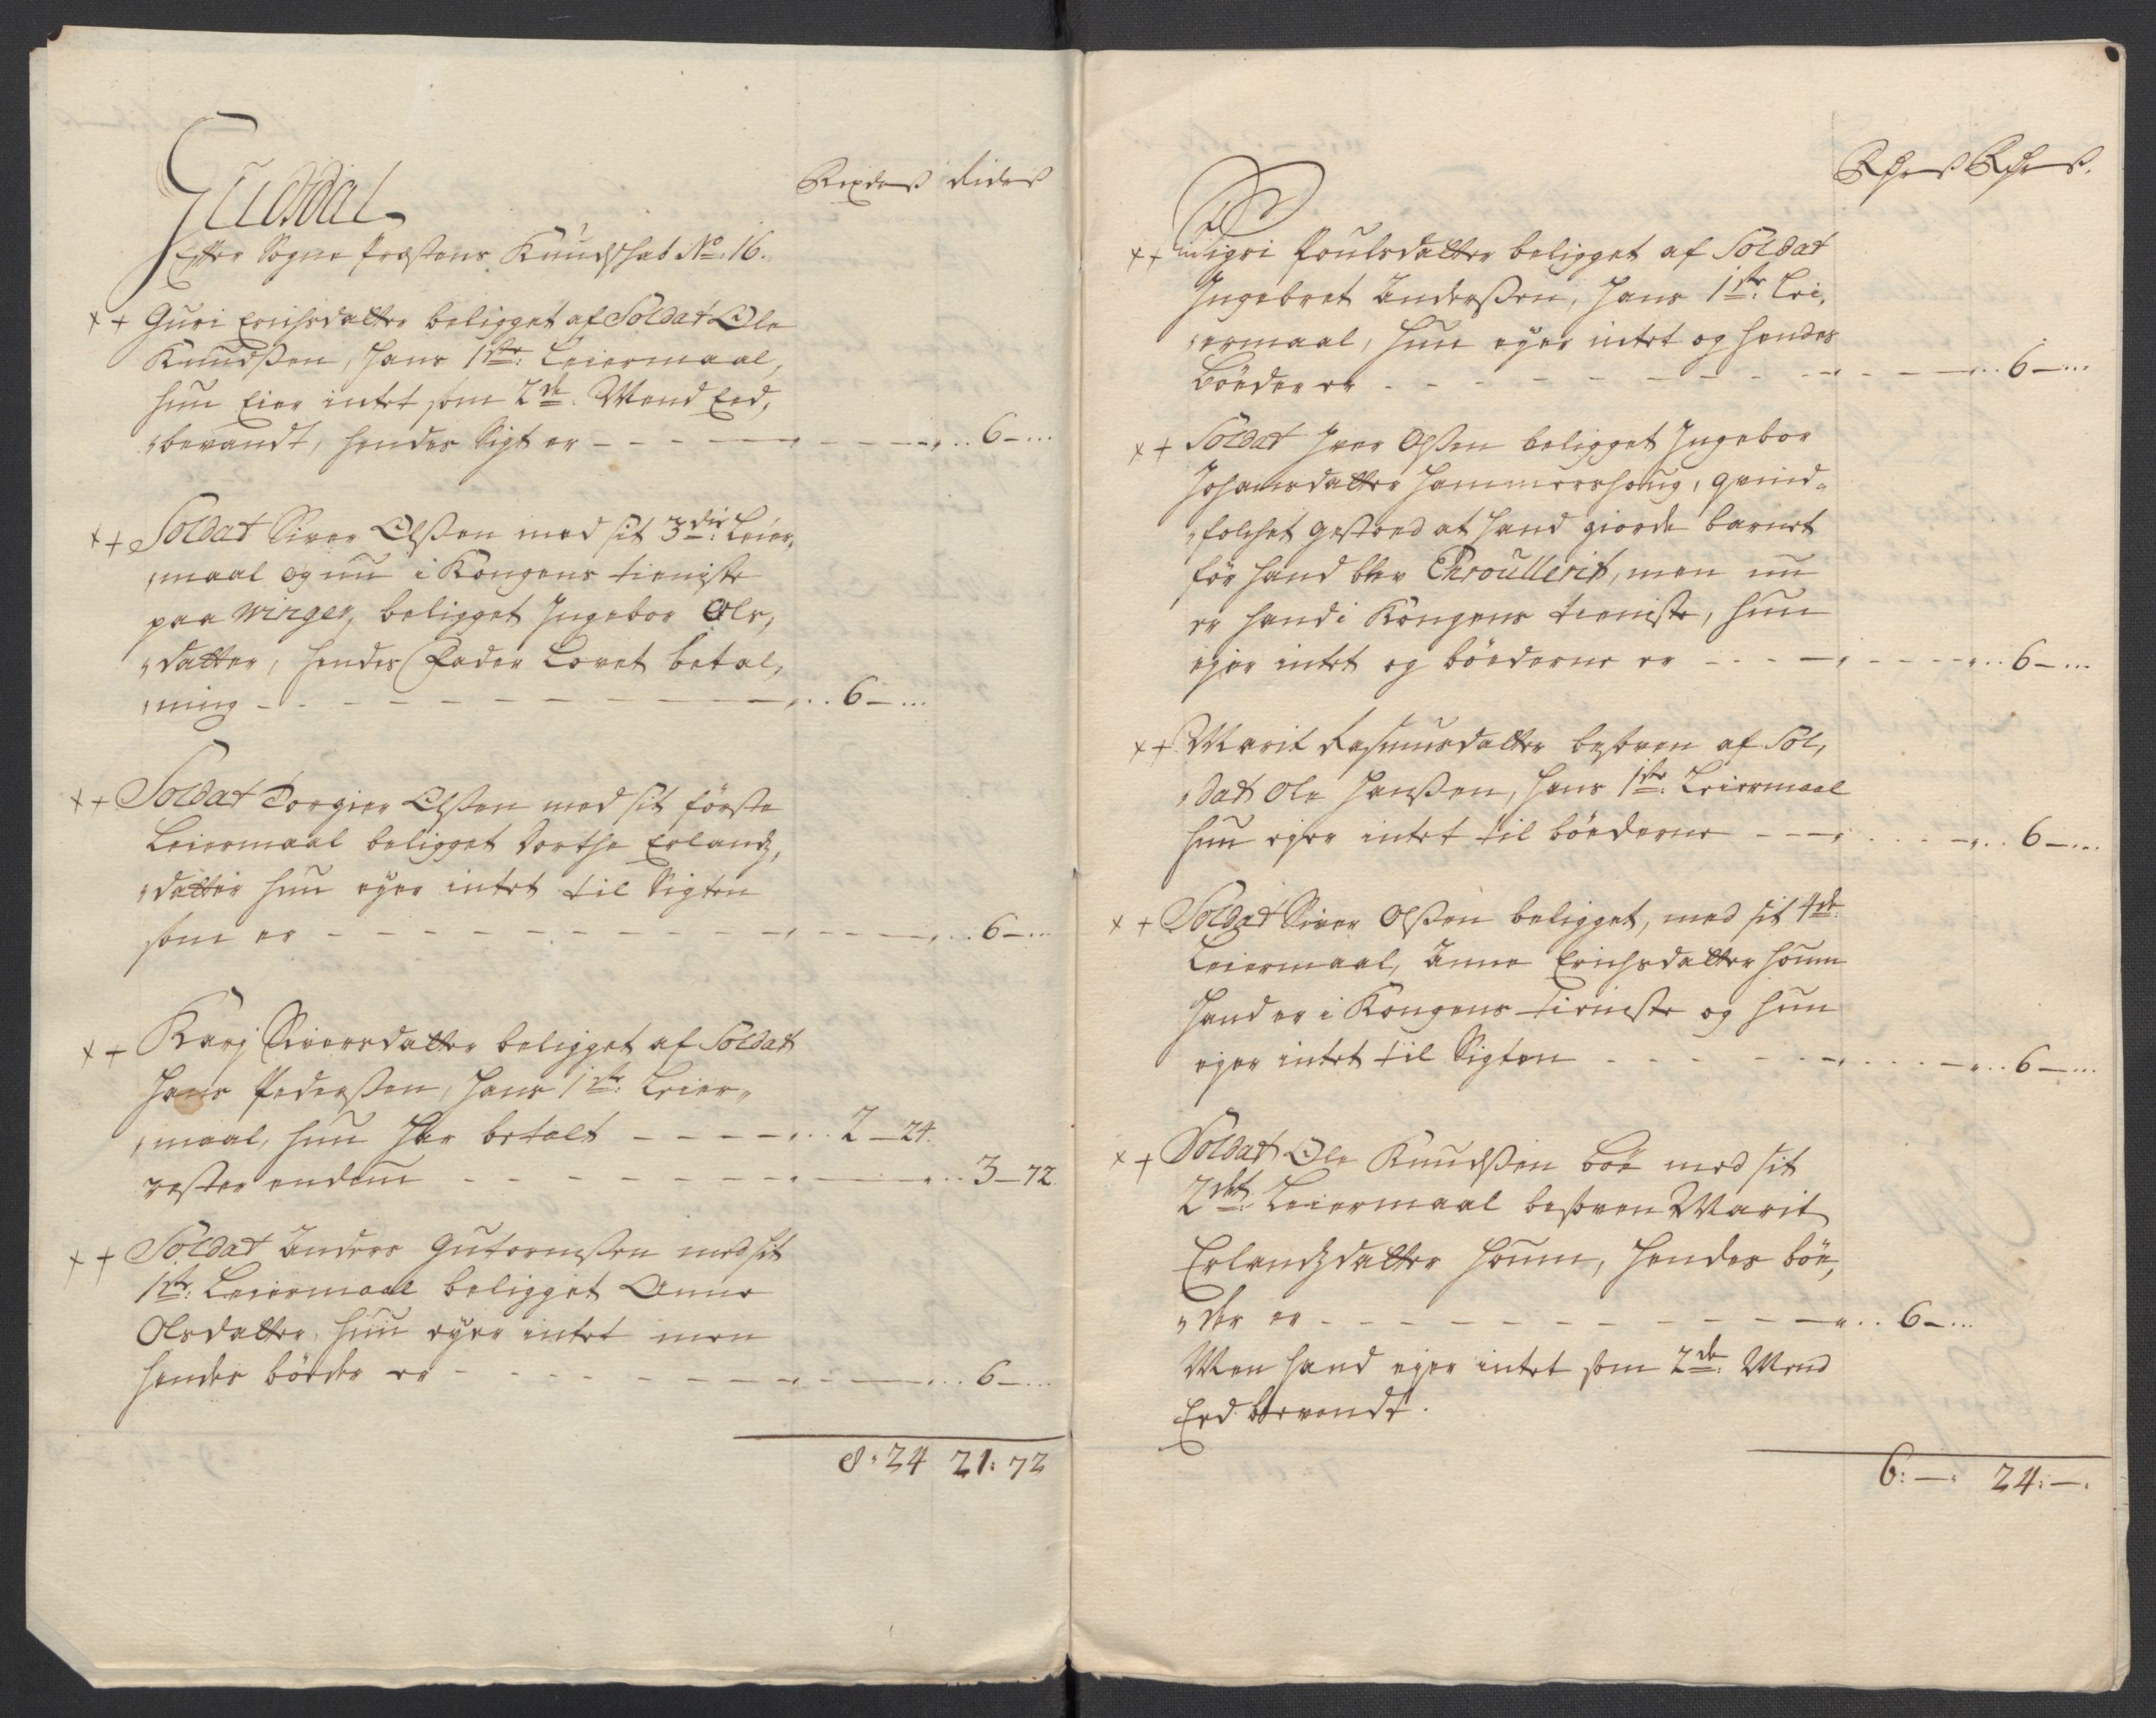 Guldal
Efter Sogne Præstens Kundschab No. 16.
×+ Guri Erichsdatter beligget af Soldat Ole
Knudsen, hans 1ste Leiermaal,
hun Eier intet som 2de Mend Eed,
bevandt, hendes Sigt er - - - 6 - ...
×+ Soldat Siver Olssen med sit 3die Leier,
maal og nu i Kongens tieniste
paa Winger, beligget Ingebor Ols,
datter, hendes Fader Lovet betal,
ning - - - 6 - ...
×+ Soldat Torgier Olssen med sit første
Leiermaal beligget Dorthe Erlandz,
datter hun eyer intet til Sigten
som er - - - 6 - ...
×+ Karj Siversdatter beligget af Soldat
Hans Pederssen, hans 1ste Leier,
maal, hun har betalt - - - 2 - 24.
rester endnu - - - 3 - 72
×+ Soldat Anders Gutormssen med sit
1ste: Leiermaal beligget Anne
Olsdatter, hun eyer intet men
hendes böeder er - - - 6 - ...
8 : 24 21 : 72
×+ Sigri Poulsdatter beligget af Soldat
Ingebret Anderssen, hans 1ste: Lei,
ermaal, hun eyer intet og hendes
Böeder er - - - 6 - ...
×+ Soldat Iver Olssen beligget Ingebor
Johansdatter Hammershoug, qvind,
folchet gestoed at hand giorde barnet
för hand blev Enroullerit, men nu
er hand i Kongens tieniste, hun
eyer intet og böederne er - - - 6 - ...
×+ Marit Rasmusdatter besoven af Sol,
dat Ole Hanssen, hans 1ste: Leiermaal
hun eyer intet til böederne - - - 6 - ...
×+ Soldat Siver Olssen beligget, med sit 4de:
Leiermaal, Anne Erichsdatter Houm
Hand er i Kongens tieniste og hun
eyer intet til Sigten - - - 6 - ...
×+ Soldat Ole Knudssen Böe med sit
2det: Leiermaal besoven Marit
Erlandzdatter Houm, hendes böe,
der er - - - 6 - ...
Men hand eyer intet som 2de: Mend
Eed bevendt.
6 : - : 24 : - .